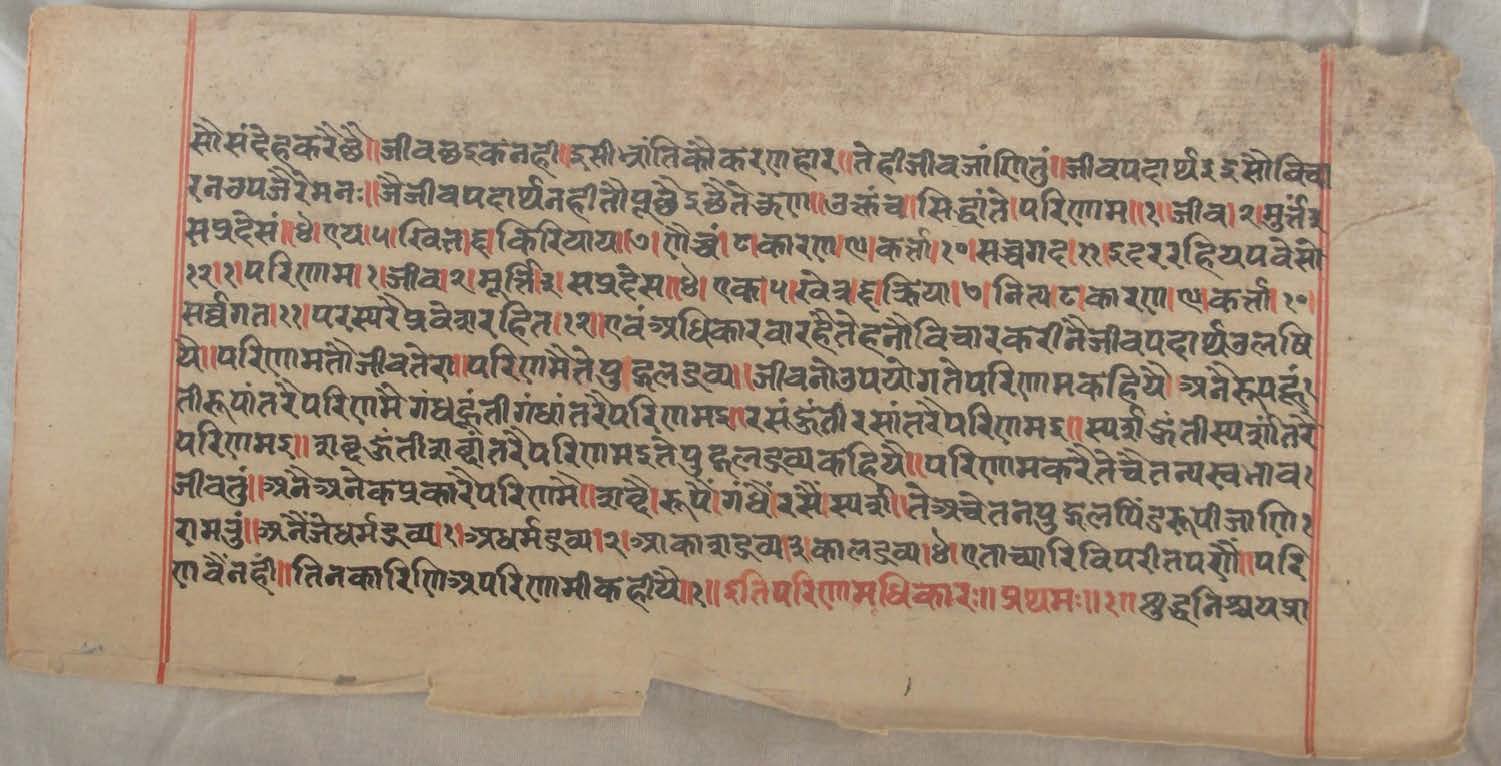 सौ संदेह करै छै॥ जीव छइ क नही॥ इसी भ्रांति कौ करणहार॥ तेही जीव जांणितुं॥ जीवपदार्थ इइसौ विचा
र न उपजै रे मनः॥ जै जीवपदार्थ नही तौ पूछै इछै ते कुण॥ उक्तं च॥ सिद्धांते॥ परिणाम॥१॥ जीव।२। मुत्तं३
सप्रदेसं॥४॥ एय।५। खित्त।६। किरियाय।७। णिच्चं।८। कारण।९। कर्त्ता।१०। सव्वगद।११। इदररहियपवेसो
१२।१। परिणाम।१। जीव।२। मूर्त्ति।३। सप्रदेस॥४॥ एक।५। खेत्र।६। क्रिया।७। नित्य।८। कारण।९। कर्त्ता।१०।
सर्वगत।११। परस्परै प्रवेशरहित।१२। एवं अधिकार बार है तेहनौ विचार करीनै जीवपदार्थ उलषि
यै॥ परिणाम तौ जीव तेरा॥ परिणमै ते पुद्गलद्रव्य॥ जीवनो उपयोग ते परिणाम कहियै॥ अनै रूप हुं१
ती रूपांतरै परिणमै गंध हूंती गंधांतरै परिणमइ॥ रस हुंती रसांतरै परिणमइ॥ स्पर्श हुंती स्पर्शांतरै
परिणमइ॥ शब्द हुंती शब्दांतरै परिणमइ ते पुद्गलद्रव्य कहियै॥ परिणाम करै ते चैतन्यस्वभाव१
जीव तुं॥ अनै अनेक प्रकारै परिणमै॥ शब्दै। रूपैं। गंधैं। रसैं। स्पर्शी। ते अचेतन पुद्गलपिंड रूपी जाणि१
रामतुं॥ अनैं जे धर्मद्रव्य।१। अधर्मद्रव्य।२। आकाशद्रव्य।३। कालद्रव्य।४। एता च्यारि विपरीतपणैं॥ परि
णवैं नहीं॥ तिन कारिणि अपरिणामी कहीयै॥१॥ इति परिणामधिकारः॥ प्रथमः॥१॥ सुद्धनिश्चयप्रा